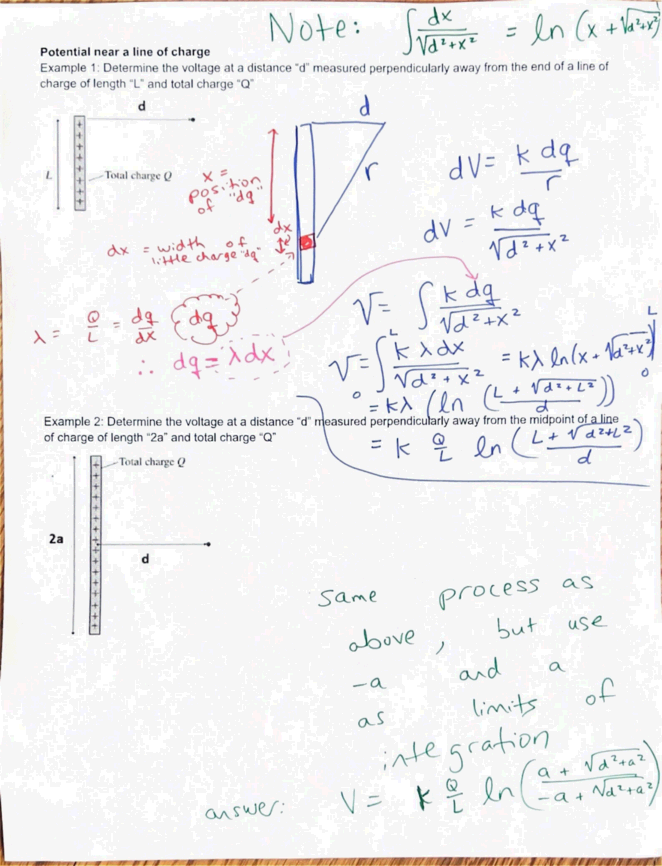 Note: ∫ dx / √(d²+x²) = ln (x + √(d²+x²))
Potential near a line of charge
Example 1: Determine the voltage at a distance "d" measured perpendicularly away from the end of a line of
charge of length "L" and total charge "Q"
d
L
Total charge Q
x =
position
of "dq"
d
r
dx
dx = width of
little charge "dq"
dV = k dq / r
dV = k dq / √(d²+x²)
λ = Q/L = dq/dx
dq
∴ dq = λdx
V = ∫ k dq / √(d²+x²)
V = ∫₀ᴸ k λ dx / √(d²+x²) = kλ ln(x + √(d²+x²)) |₀ᴸ
= kλ (ln (L + √(d²+L²) / d))
= k Q/L ln (L + √(d²+L²) / d)
Example 2: Determine the voltage at a distance "d" measured perpendicularly away from the midpoint of a line
of charge of length "2a" and total charge "Q"
Total charge Q
2a
d
same process as
above, but use
-a and a
as limits of
integration
answer: V = k Q/L ln (a + √(d²+a²) / -a + √(d²+a²))